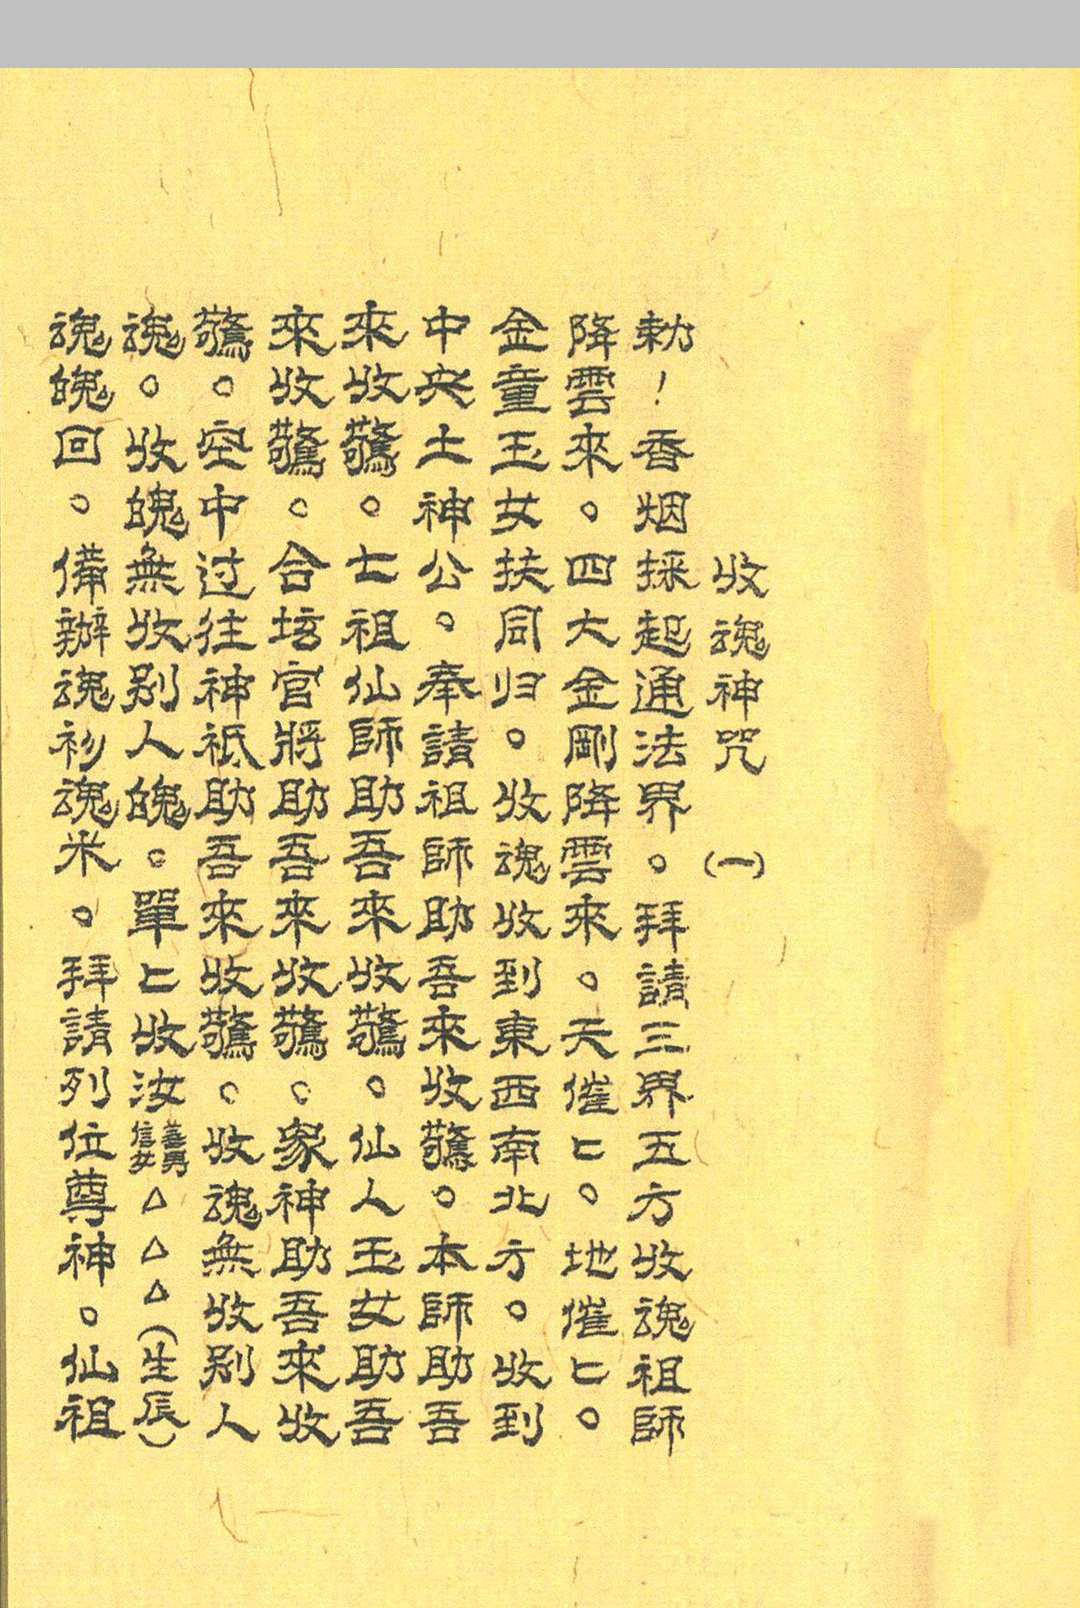 收魂神咒 (一)
勅！香烟採起通法界。拜請三界五方收魂祖師
降雲來。四大金剛降雲來。天催匕。地催匕。
金童玉女扶同归。收魂收到東西南北方。收到
中央土神公。奉請祖師助吾來收驚。本師助吾
來收驚。七祖仙師助吾來收驚。仙人玉女助吾
來收驚。合坛官將助吾來收驚。衆神助吾來收
驚。空中过往神祇助吾來收驚。收魂無收別人
魂。收魄無收別人魄。單匕收汝善男信女△△△(生辰)
魂魄回。備辦魂衫魂米。拜請列位尊神。仙祖